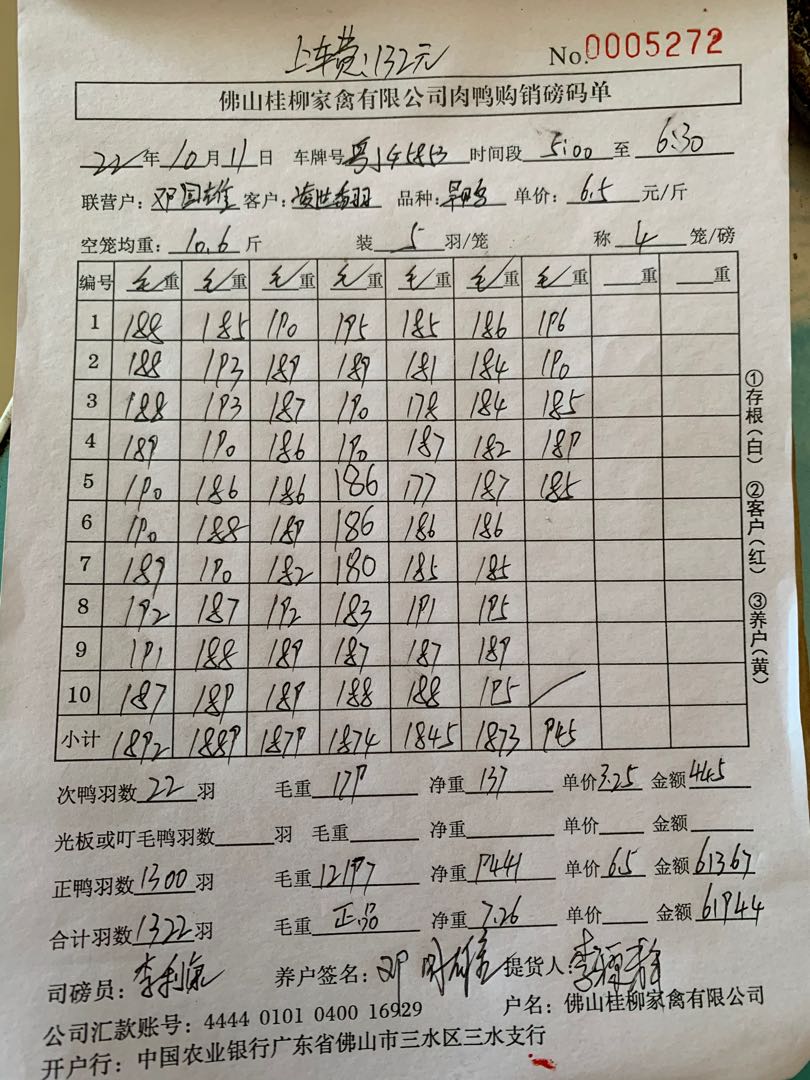 上车费:132元
No.0005272
佛山桂柳家禽有限公司肉鸭购销磅码单
22年10月11日 车牌号 粤J45853 时间段 5:00 至 6:30
联营户:邓国雄 客户: 品种: 单价:6.5元/斤
空笼均重:10.6斤 装5羽/笼 称4笼/磅
编号 毛重 毛重 毛重 毛重 毛重 毛重 毛重 重 重
1 188 185 190 195 185 186 196
2 188 193 189 189 181 184 190
3 188 193 187 190 178 184 185
4 189 190 186 190 187 182 189
5 190 186 186 186 177 187 185
6 190 188 189 186 186 186
7 189 190 182 180 185 185
8 192 187 192 183 191 195
9 191 188 189 187 187 189
10 187 189 189 188 188 195
小计 1892 1889 1879 1874 1845 1873 945
①存根(白) ②客户(红) ③养户(黄)
次鸭羽数22羽 毛重179 净重137 单价3.25 金额445
光板或叮毛鸭羽数 羽 毛重 净重 单价 金额
正鸭羽数1300羽 毛重12197 净重9441 单价6.5 金额61367
合计羽数1322羽 毛重正品 净重7.26 单价 金额61944
司磅员:李利 养户签名:邓 雄 提货人:李
公司汇款账号:4444 0101 0400 16929 户名:佛山桂柳家禽有限公司
开户行:中国农业银行广东省佛山市三水区三水支行